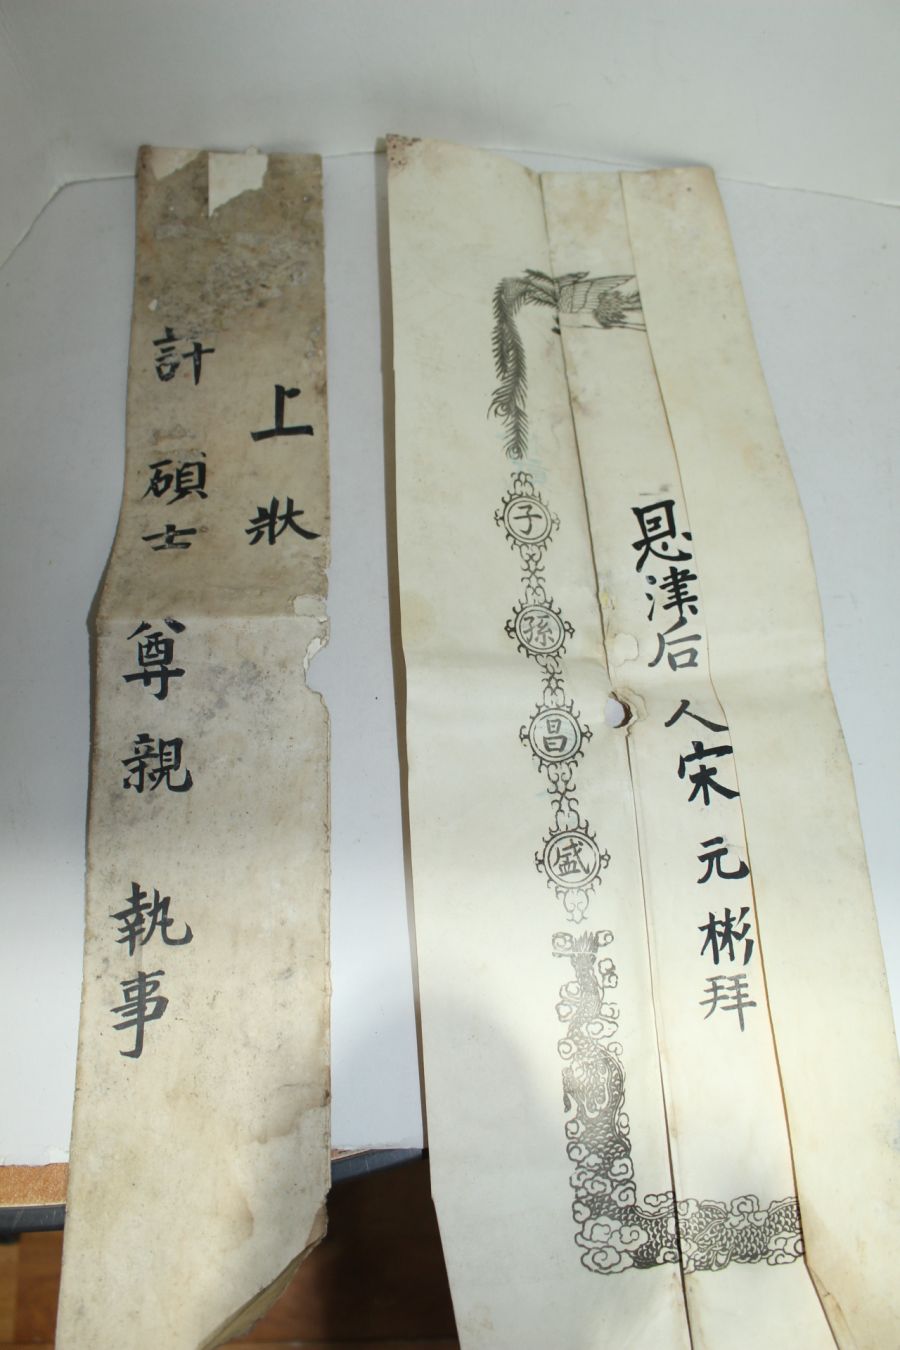 上狀
計碩士 尊親 執事
恩津后人宋元彬拜
子孫昌盛